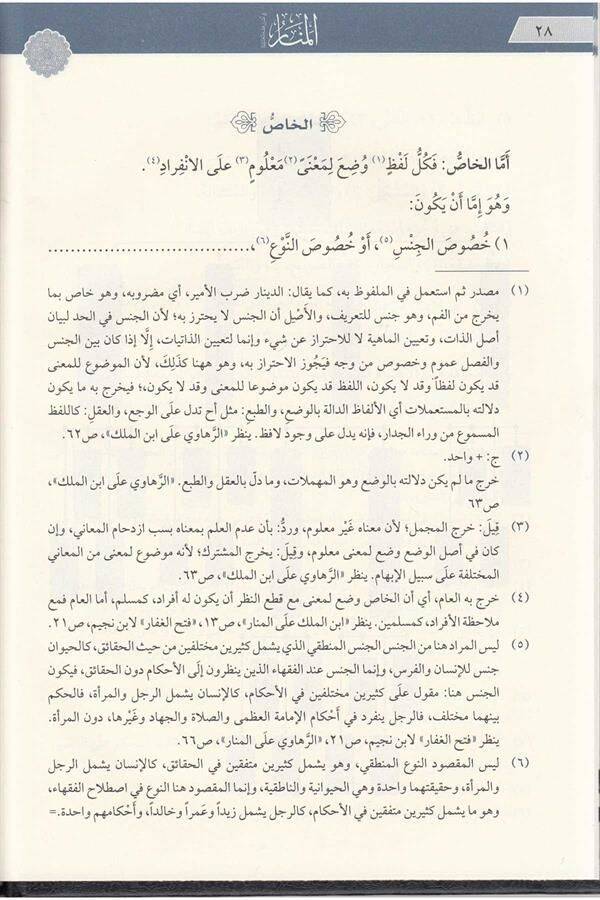 المنار
٢٨
الخاص
أَمَّا الخاصُّ: فَكُلُّ لَفْظٍ(١) وُضِعَ لِمَعْنَىً(٢) مَعْلُومٍ(٣) علَى الانْفِرادِ(٤).
وَهُوَ إِمَّا أَنْ يَكُونَ:
١) خُصُوصَ الجِنْسِ(٥)، أَوْ خُصُوصَ النَّوْعِ(٦)،..................................
(١) مصدر ثم استعمل في الملفوظ به، كما يقال: الدينار ضرب الأمير، أي مضروبه، وهو خاص بما
يخرج من الفم، وهو جنس للتعريف، والأصْيل أن الجنس لا يحترز به؛ لأن الجنس في الحد لبيان
أصل الذات، وتعيين الماهية لا للاحتراز عن شيء وإنما لتعيين الذاتيات، إلَّا إذا كان بين الجنس
والفصل عموم وخصوص من وجه فيَجُوز الاحتراز به، وهو ههنا كذَلِكَ، لأن الموضوع للمعنى
قد يكون لفظاً وقد لا يكون، اللفظ قد يكون موضوعا للمعنى وقد لا يكون،؛ فيخرج به ما يكون
دلالته بالمستعملات أي الألفاظ الدالة بالوضعِ، والطبعِ: مثل أح تدل علَى الوجع، والعقلِ: كاللفظ
المسموع من وراء الجدار، فإنه يدل على وجود لافظ. ينظر «الرَّهاوي علَى ابن الملك»، ص٦٢.
(٢) ج: + واحد.
خرج ما لم يكن دلالته بالوضع وهو المهملات، وما دلّ بالعقل والطبع. «الرَّهاوي علَى ابن الملك»،
ص٦٣.
(٣) قِيلَ: خرج المجمل؛ لأن معناه غَيْر معلوم، وردُّ: بأن عدم العلم بمعناه بسب ازدحام المعاني، وإن
كان في أصل الوضع وضع لمعنى معلوم، وقِيلَ: يخرج المشترك؛ لأنه موضوع لمعنى من المعاني
المختلفة علَى سبيل الإبهام. ينظر «الرَّهاوي علَى ابن الملك»، ص٦٣.
(٤) خرج به العام، أي أن الخاص وضع لمعنى مع قطع النظر أن يكون له أفراد، كمسلم، أما العام فمع
ملاحظة الأفراد، كمسلمين. ينظر «ابن الملك علَى المنار»، ص١٣، «فتح الغفار» لابن نجيم، ص٢١.
(٥) ليس المراد هنا من الجنس الجنس المنطقي الذي يشمل كثيرين مختلفين من حيث الحقائق، كالحيوان
جنس للإنسان والفرس، وإنما الجنس عند الفقهاء الذين ينظرون إلَى الأحكام دون الحقائق، فيكون
الجنس هنا: مقول علَى كثيرين مختلفين في الأحكام، كالإنسان يشمل الرجل والمرأة، فالحكم
بينهما مختلف، فالرجل ينفرد في أَحْكام الإمامة العظمى والصلاة والجهاد وغَيْرها، دون المرأة.
ينظر «فتح الغفار» لابن نجيم، ص٢١، «الرَّهاوي علَى المنار»، ص٦٦.
(٦) ليس المقصود النوع المنطقي، وهو يشمل كثيرين متفقين في الحقائق، كالإنسان يشمل الرجل
والمرأة، وحقيقتهما واحدة وهي الحيوانية والناطقية، وإنما المقصود هنا النوع في اصطلاح الفقهاء،
وهو ما يشمل كثيرين متفقين في الأحكام، كالرجل يشمل زيداً وعَمراً وخالداً، وأَحْكامهم واحدة.=